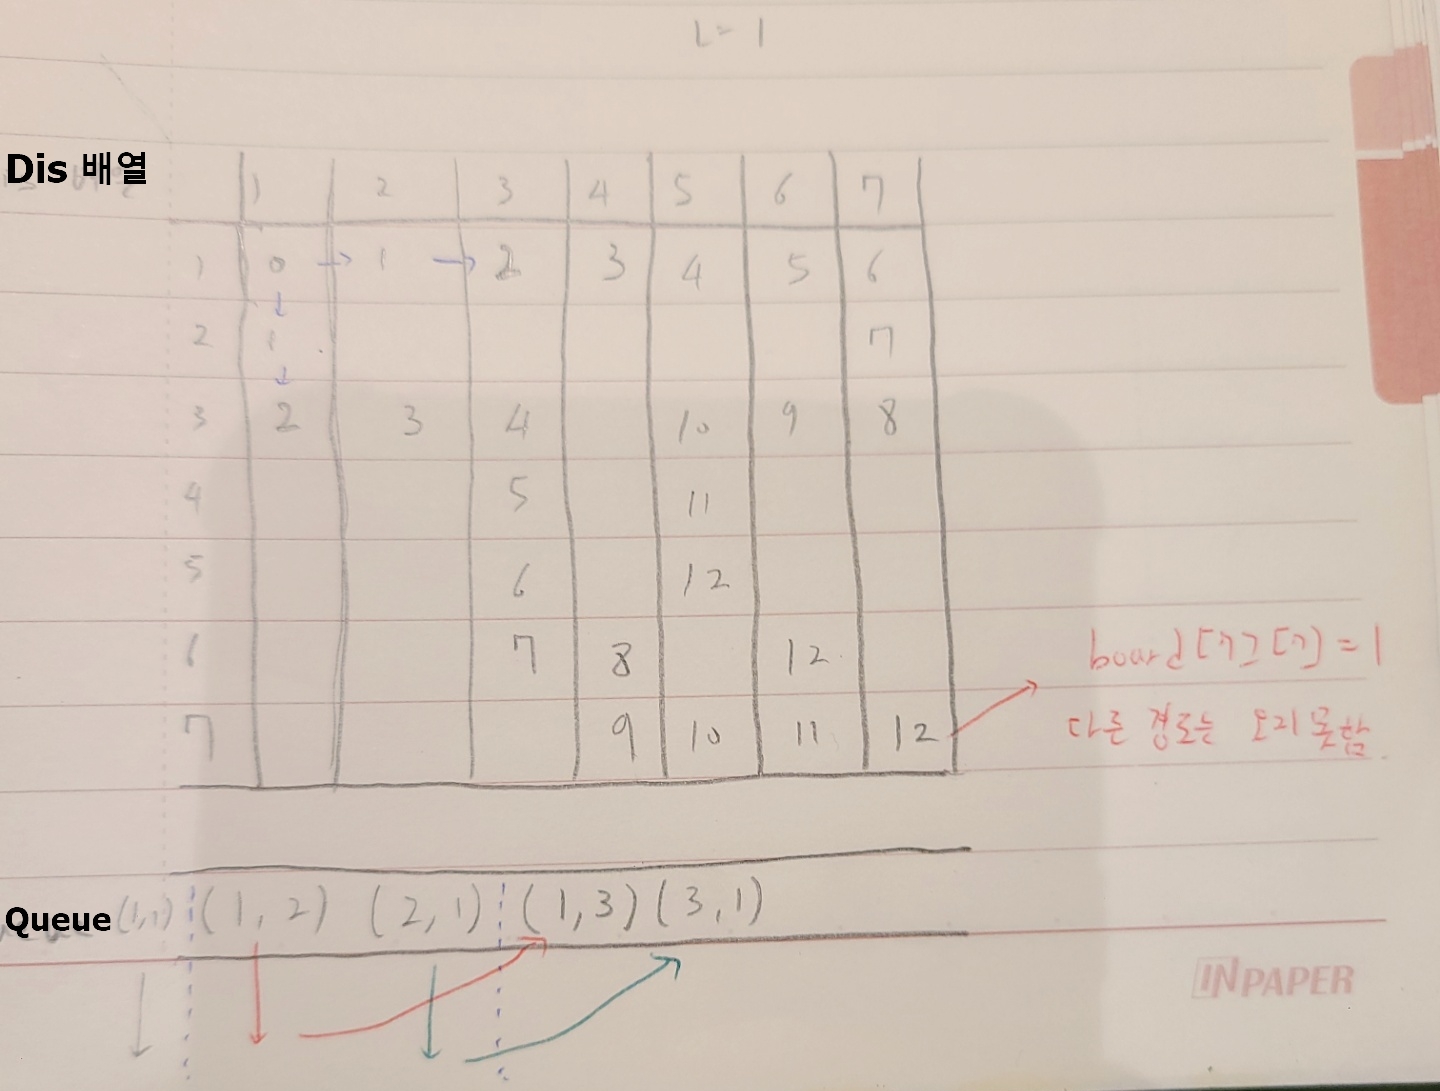 L=1
Dis 배열
1 2 3 4 5 6 7
1 0 → 1 → 2 3 4 5 6
↓
2 1 7
↓
3 2 3 4 10 9 8
4 5 11
5 6 12
6 7 8 12
7 9 10 11 12
board[7][7]=1
다른 경로는 오지 못함
Queue (1,1) (1,2) (2,1) (1,3) (3,1)
INPAPER